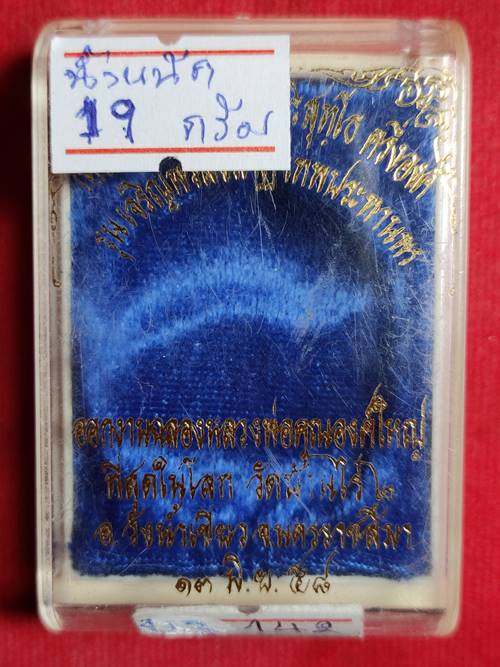 น้ำหนัก
19 กรัม
สุทโธ ครึ่งองค์
รุ่นเจริญพร
ออกงานฉลองหลวงพ่อคูณองค์ใหญ่
ที่สุดในโลก วัดบ้านไร่๒
อ.วังน้ำเขียว จ.นครราชสีมา
๑๓ พ.ย. ๕๘